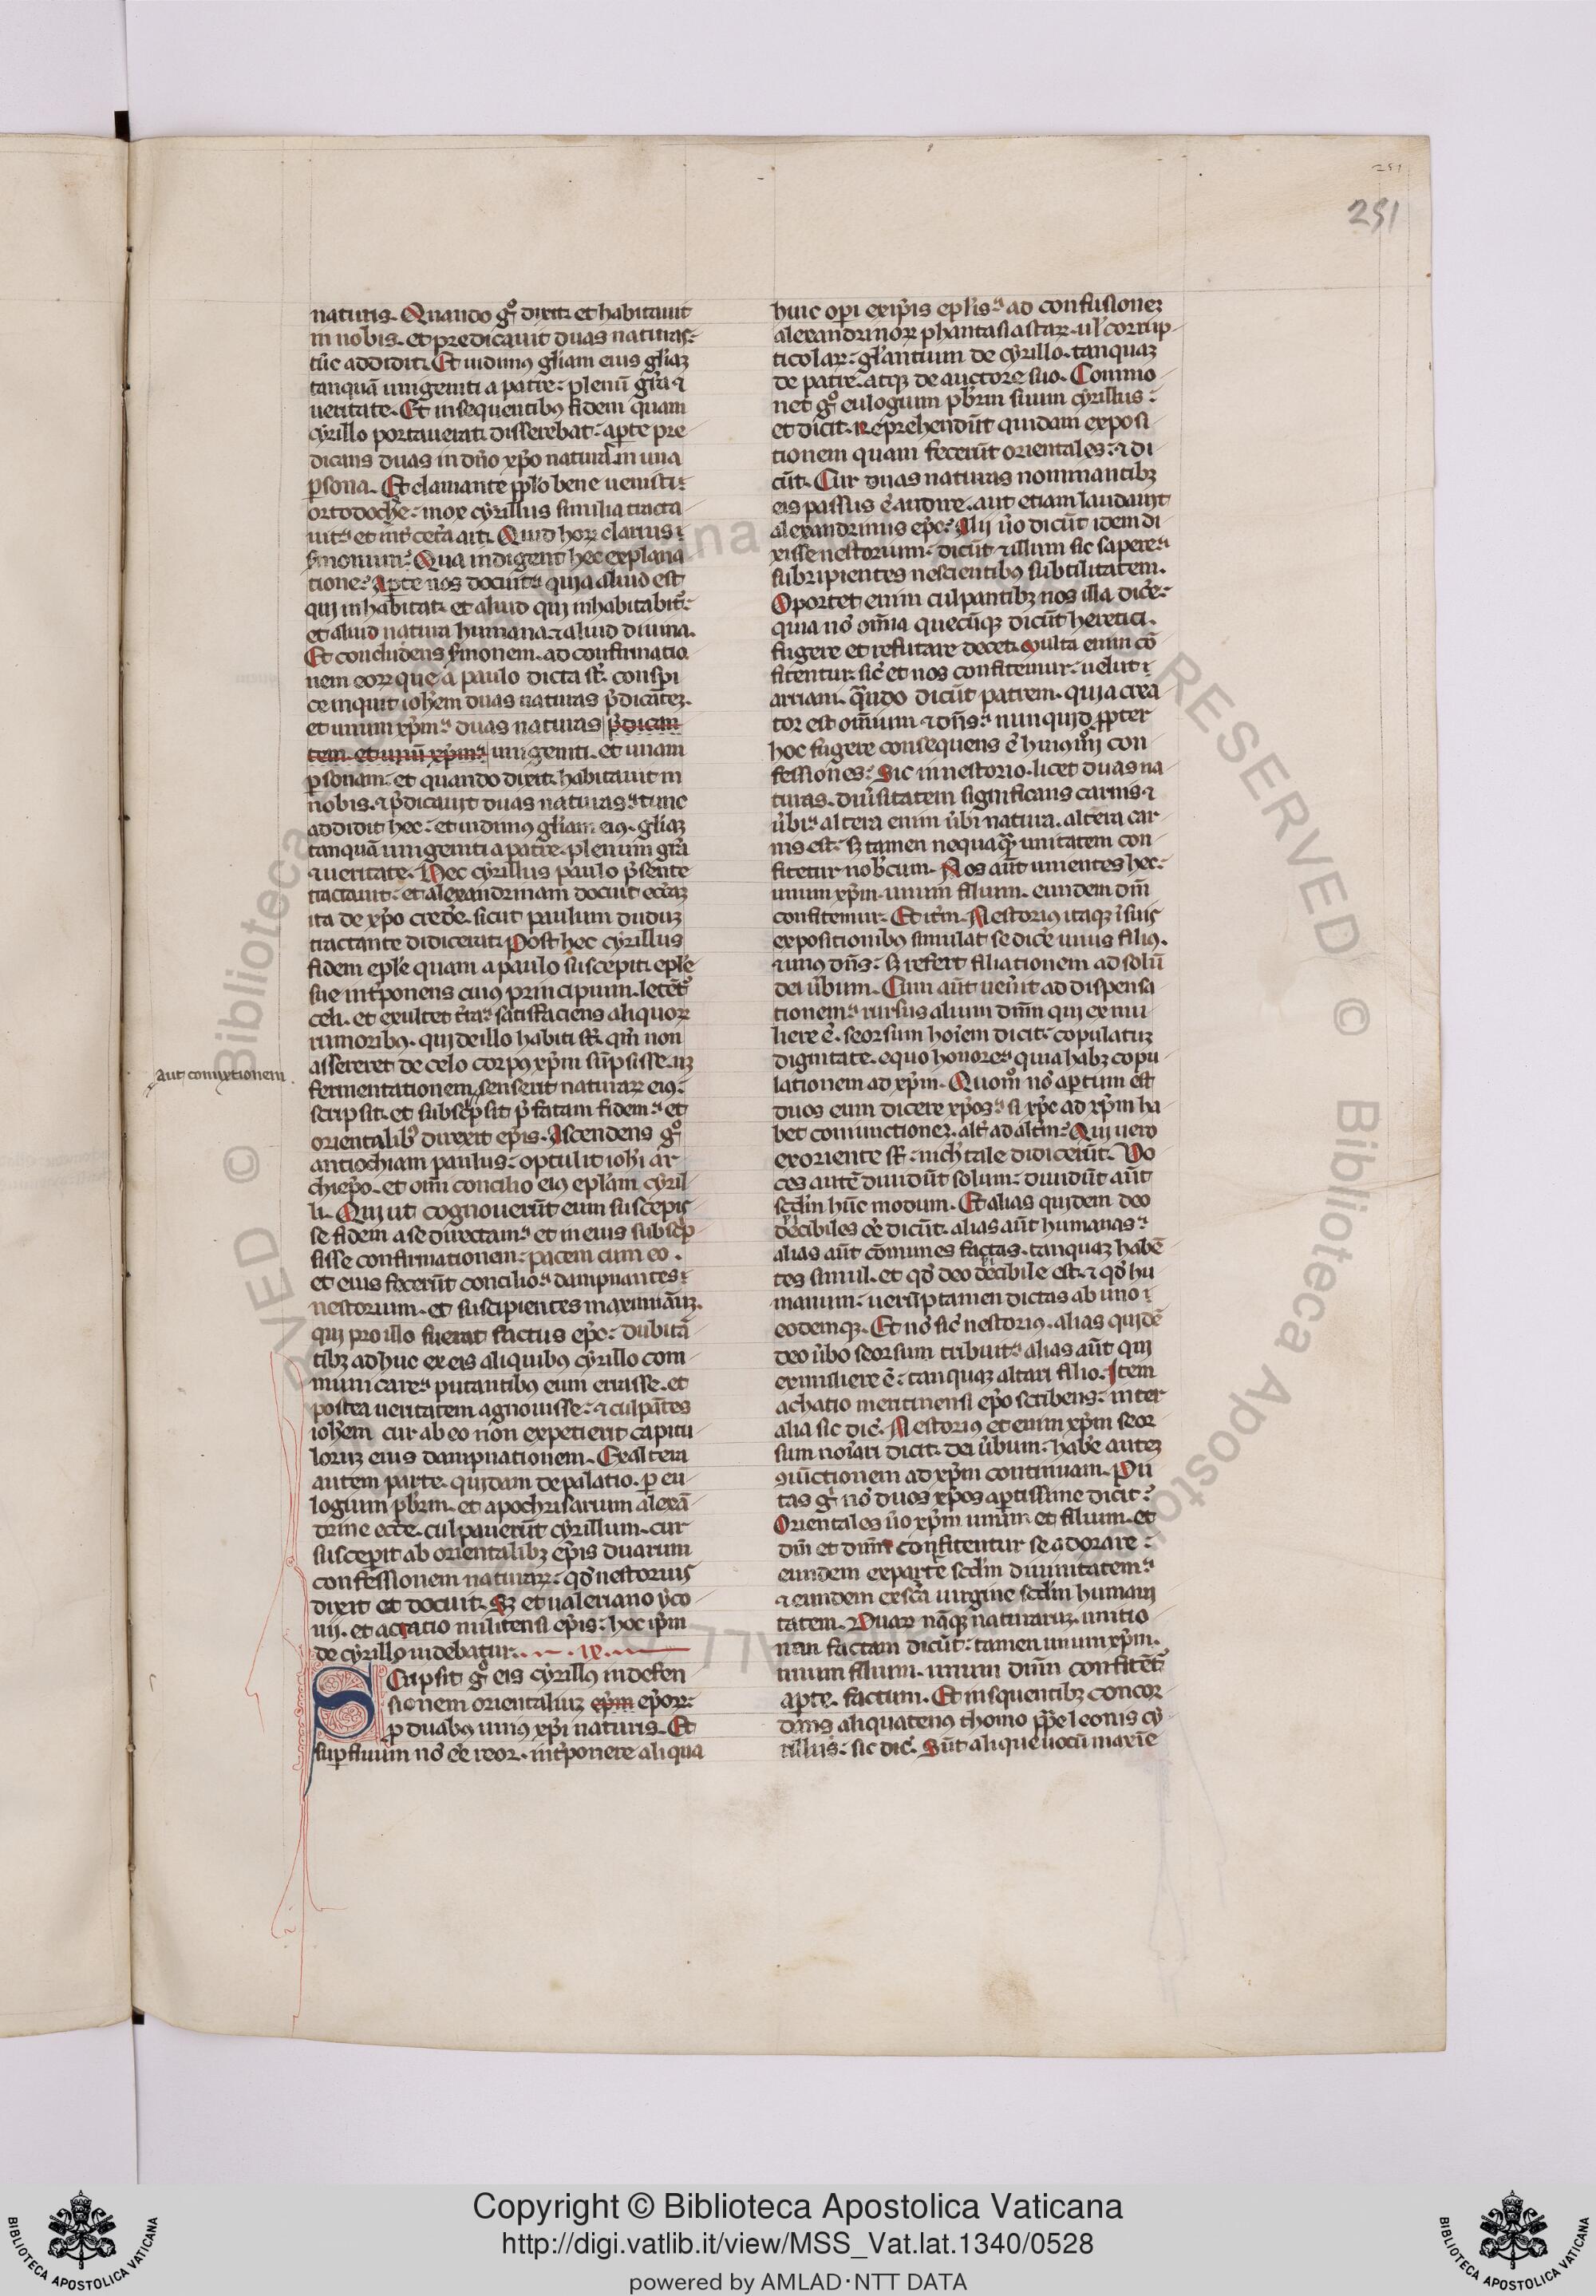 251
251
naturis. Quando gͦ dixit et habitauit
in nobis. et predicauit duas naturas:
tūc addidit. Et uidimꝰ gl'iam eius gl'iaꝫ
tanquā unigeniti a patre: plenū gr̄a ⁊
ueritate. Et in sequentibꝰ fidem quam
cyrillo portauerat disserebat: aꝑte pre
dicans duas in dn̄o xp̄o naturas in una
ꝑsona. Et clamante pp̄lo bene uenisti
ortodoche: mox cyrillus similia tracta
uit. et int̄ cet̄a ait. Quid hoꝝ clarius ē
s̄monum? Qua indigent hec explana
tione? Aꝑte nos docuit quia aliud est
qui inhabitat. et aliud qui inhabitabit᷑:
et aliud natura humana. ⁊ aliud diuina.
Et concludens s̄monem. ad confirmatio
nem eoꝝ que a paulo dicta st̄. conspi
ce inquit ioh̄em duas naturas p̄dicātē.
et unum xp̄m. duas naturas p̄dican
tem. et unū xp̄m. unigeniti. et unam
ꝑsonam. et quando dixit. habitauit in
nobis. ⁊ p̄dicauit duas naturas. tunc
addidit hec: et uidimꝰ gl'iam eiꝰ. gl'iaꝫ
tanquā unigeniti a patre. plenum gr̄a
⁊ ueritate. Hec cyrillus paulo p̄sente
tractauit: et alexandrinam docuit ecc̄aꝫ
ita de xp̄o credēre. sicut paulum duduꝫ
tractante didicerat. Post hec cyrillus
fidem ep̄le quam a paulo suscepit ep̄le
sue int̄ponens cuiꝰ principium. letēt᷑
celi. et exultet t̄ra. satisfaciens aliquoꝝ
rumoribꝰ. qui de illo habiti st̄. qm̄ non
assereret de celo corpꝰ xp̄m sūpsisse. ꝫ
aut conuixtionem.
fermentationem senserit naturaꝝ eiꝰ:
scripsit. et subscp̄sit p̄fatam fidem. et
orientalibꝰ direxit ep̄is. Ascendens gͦ
antiochiam paulus: optulit ioh̄i ar
chiep̄o. et om̄i concilio eiꝰ ep̄lam cyril
li. Qui ut cognouerūt eum suscepis
se fidem a se directam. et in eius subscp̄
sisse confirmationem: pacem cum eo.
et eius fecerūt concilio. dampnantes
nestorium. et suscipientes maximianuꝫ.
qui pro illo fuerat factus ep̄c: dubitā
tibꝫ adhuc ex eis aliquibꝰ cyrillo com
municare. putantibꝰ eum errasse. et
postea ueritatem agnouisse: ⁊ culpātes
ioh̄em cur ab eo non expetierit capitu
loruꝫ eius dampnationem. Ex altera
autem parte. quidam de palatio. ꝑ eu
logium pb̄rm. et apochrisarium alexā
drine ecc̄e. culpauerūt cyrillum. cur
suscepit ab orientalibꝫ ep̄is duarum
confessionem naturaꝝ: qd̄ nestorius
dixit et docuit. Sꝫ et ualeriano yco
nij. et acatio militensi ep̄is: hoc ip̄m
de cyrillo uidebatur. ix.
Scripsit gͦ eis cyrillꝰ in defen
sionem orientaliuꝫ ep̄m ep̄oꝝ:
ꝑ duabꝰ uniꝰ xp̄i naturis. Et
suꝑfluum nō ēē reor. int̄ponere aliqua
huic op̄i ex ip̄is ep̄lis. ad confusioneꝫ
alexandrinoꝝ phantasiastaꝝ. ul' corrup
ticolaꝝ: gl'antium de cyrillo. tanquaꝫ
de patre. atqꝫ de auctore suo. Commo
net gͦ eulogium pb̄rm suum cyrillus:
et dicit. Reprehendūt quidam exposi
tionem quam fecerūt orientales: ⁊ di
cūt. Cur duas naturas nominantibꝫ
eis passus ē audire. aut etiam laudauit
alexandrinus ep̄c? Alij ūo dicūt idem di
xisse nestorium: dicūt ⁊ illum sic sapere.
subripientes nescientibꝰ subtilitatem.
Oportet enim culpantibꝫ nos illa dicēre:
quia nō om̄ia quecūqꝫ dicūt heretici.
fugere et refutare decet. Multa enim cō
fitentur. sic̄ et nos confitemur: uelut
arriani. qn̄do dicūt patrem. quia crea
tor est om̄ium ⁊ dn̄s. nunquid ꝓpter
hoc fugere consequens ē huiꝰmͦi con
fessiones? Sic in nestorio. licet duas na
turas. diūsitatem significans carnis ⁊
ūbi. altera enim ūbi natura. altera car
nis est. sꝫ tamen nequaqͣꝫ unitatem con
fitetur nob̄cum. Nos aūt unientes hec:
unum xp̄m. unum filium. eundem dn̄m
confitemur. Et itē. Nestoriꝰ itaqꝫ ī suis
expositionibꝰ simulat se dicēre unus filiꝰ.
⁊ unꝰ dn̄s: sꝫ refert filiationem ad solū
dei ūbum. Cum aūt uen̄it ad dispensa
tionem. rursus alium dn̄m qui ex mu
liere ē. seorsum hoīem dicit: copulatuꝫ
dignitate. equo honore. quia habꝫ copu
lationem ad xp̄m. Quomͦ nō aꝑtum est
duos eum dicere xp̄os. si xp̄c ad xp̄m ha
bet coniunctioneꝫ. alt̄ ad alt̄m? Qui uero
ex oriente st̄: nich̄ tale didicerūt. Vo
ces autē diuidūt solum: diuidūt aūt
scd̄m hūc modum. Et alias quidem deo
decibiles ēē dicūt. alias aūt humanas.
alias aūt cōmunes factas. tanquaꝫ habē
tes simul. et qd̄ deo decibile est. ⁊ qd̄ hu
manum: uerūptamen dictas ab uno
eodemqꝫ. Et nō sic̄ nestoriꝰ. alias quidē
deo ūbo seorsum tribuit. alias aūt qui
ex muliere ē: tanquaꝫ altari filio. Item
achatio meritinensi ep̄o scribens: inter
alia sic dic̄. Nestoriꝰ etenim xp̄m seor
sum noīari dicit. dei ūbum: habēre auteꝫ
ꝯiūctionem ad xp̄m continuam. Pu
tas gͦ nō duos xp̄os aꝑtissime dicit?
Orientales ūo xp̄m unum et filium. et
dm̄ et dn̄m confitentur se adorare:
eundem ex patre scd̄m diuinitatem.
⁊ eundem ex sc̄a uirgine scd̄m humani
tatem. Duaꝝ nāqꝫ naturaruꝫ. unitio
nem factam dicūt: tamen unum xp̄m.
unum filium. unum dn̄m confitēt᷑
aꝑte. factum. Et in sequentibꝫ concor
dans aliquatenꝰ thomo pp̄e leonis cy
rillus: sic dic̄. Sūt alique uocū maxīe
Copyright © Biblioteca Apostolica Vaticana
http://digi.vatlib.it/view/MSS_Vat.lat.1340/0528
powered by AMLAD·NTT DATA
BIBLIOTECA APOSTOLICA VATICANA
BIBLIOTECA APOSTOLICA VATICANA